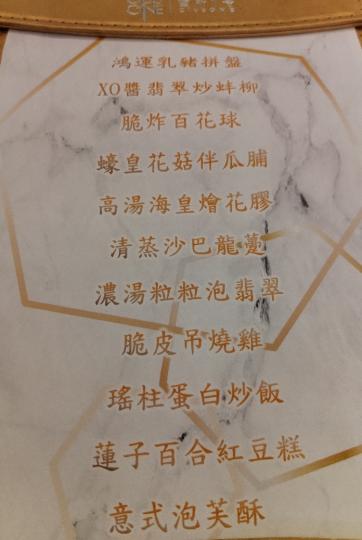 鴻運乳豬拼盤
XO醬翡翠炒蚌柳
脆炸百花球
蠔皇花菇伴瓜脯
高湯海皇燴花膠
清蒸沙巴龍躉
濃湯粒粒泡翡翠
脆皮吊燒雞
瑤柱蛋白炒飯
蓮子百合紅豆糕
意式泡芙酥